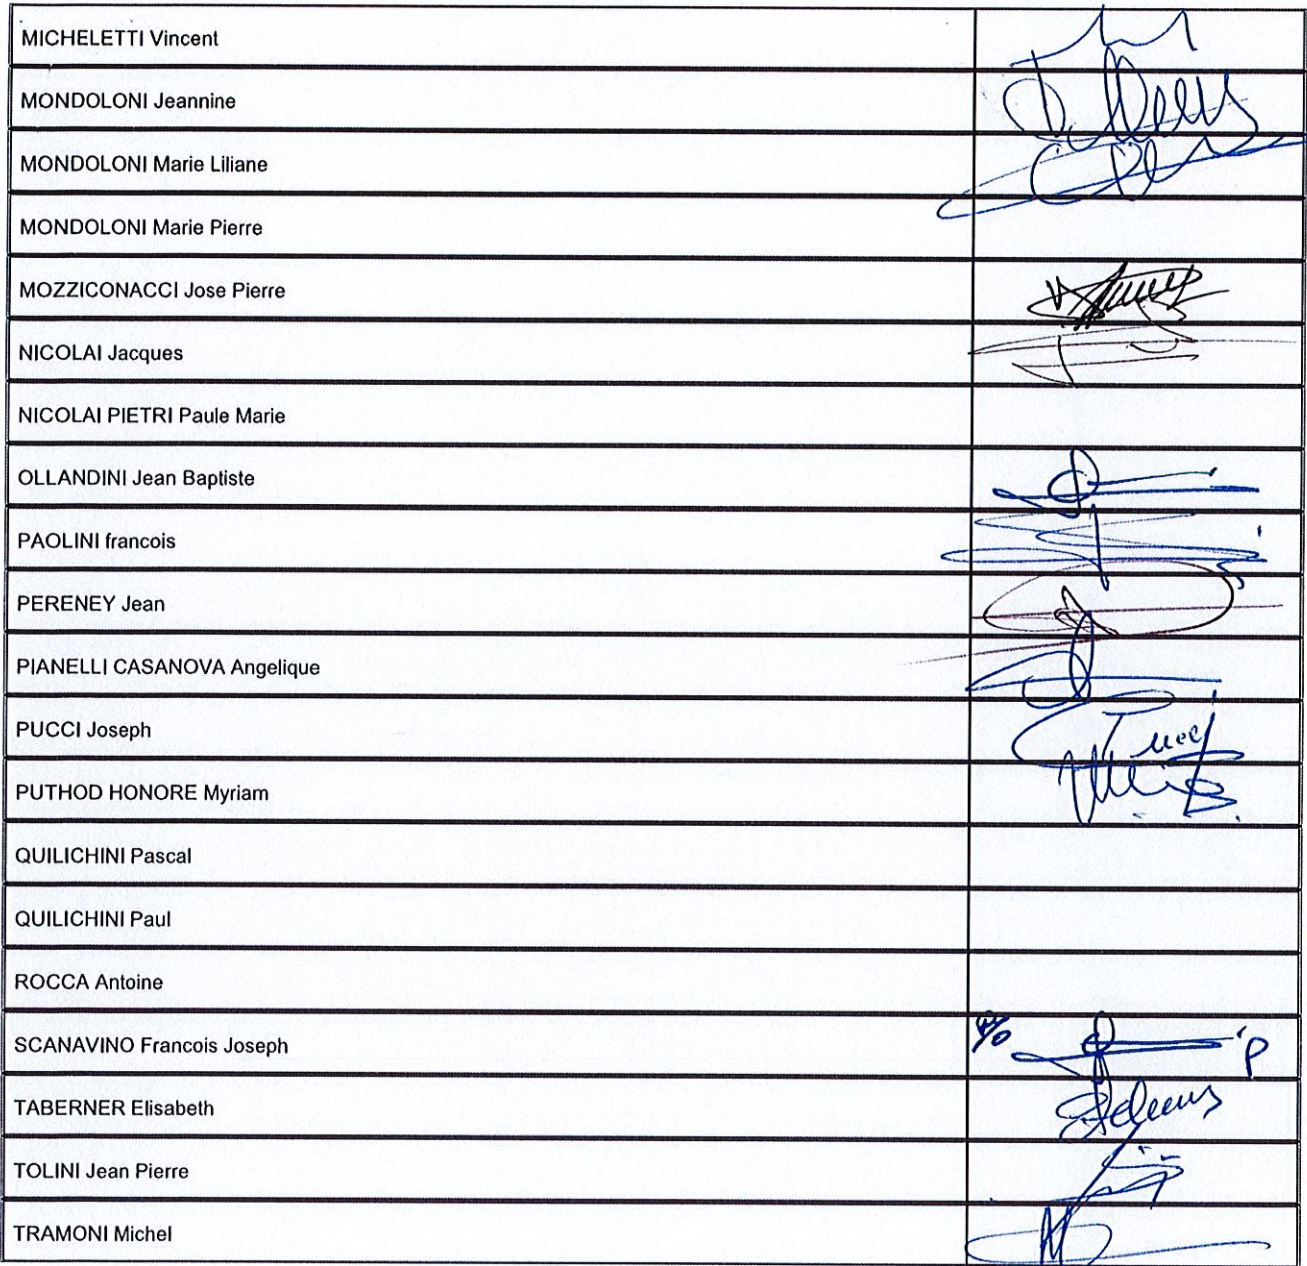 MICHELETTI Vincent
MONDOLONI Jeannine
MONDOLONI Marie Liliane
MONDOLONI Marie Pierre
MOZZICONACCI Jose Pierre
NICOLAI Jacques
NICOLAI PIETRI Paule Marie
OLLANDINI Jean Baptiste
PAOLINI francois
PERENEY Jean
PIANELLI CASANOVA Angelique
PUCCI Joseph
PUTHOD HONORE Myriam
QUILICHINI Pascal
QUILICHINI Paul
ROCCA Antoine
SCANAVINO Francois Joseph P/o
TABERNER Elisabeth
TOLINI Jean Pierre
TRAMONI Michel